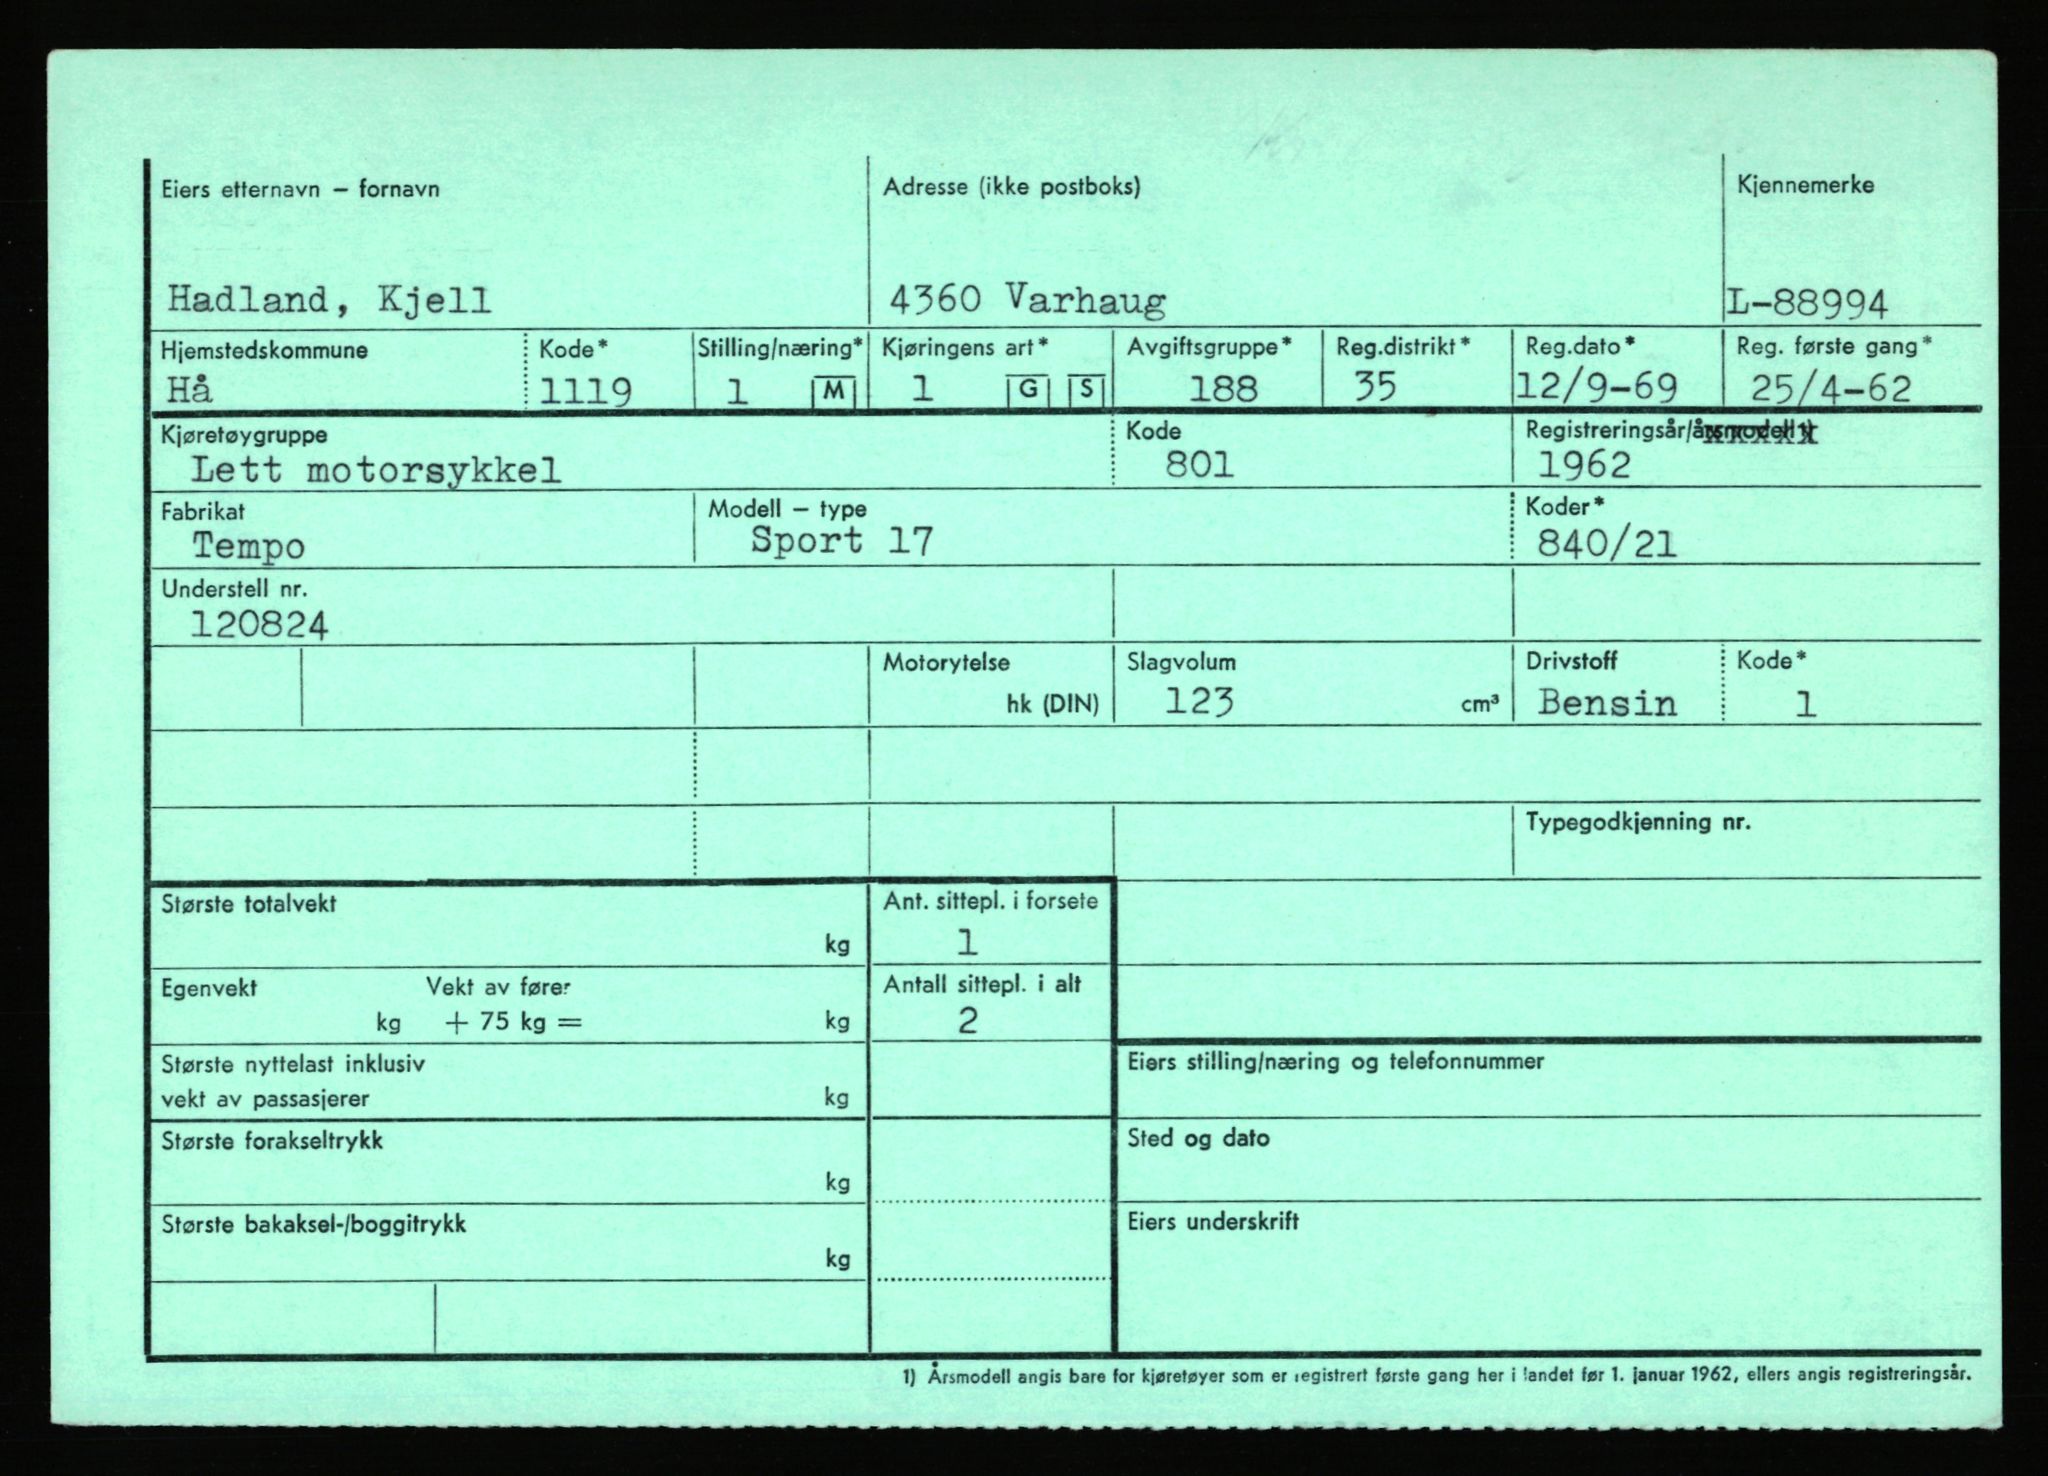 Eiers etternavn – fornavn Adresse (ikke postboks) Kjennemerke
Hadland, Kjell 4360 Varhaug L-88994
Hjemstedskommune Kode* Stilling/næring* Kjøringens art* Avgiftsgruppe* Reg.distrikt* Reg.dato* Reg. første gang*
Hå 1119 1 M 1 G S 188 35 12/9-69 25/4-62
Kjøretøygruppe Kode Registreringsår/årsmodell 1)
Lett motorsykkel 801 1962
Fabrikat Modell – type Koder*
Tempo Sport 17 840/21
Understell nr.
120824
Motorytelse Slagvolum Drivstoff Kode*
hk (DIN) 123 cm³ Bensin 1
Typegodkjenning nr.
Største totalvekt Ant. sittepl. i forsete
kg 1
Egenvekt Vekt av fører Antall sittepl. i alt
kg + 75 kg = kg 2
Største nyttelast inklusiv Eiers stilling/næring og telefonnummer
vekt av passasjerer kg
Største forakseltrykk Sted og dato
kg
Største bakaksel-/boggitrykk Eiers underskrift
kg
1) Årsmodell angis bare for kjøretøyer som er registrert første gang her i landet før 1. januar 1962, ellers angis registreringsår.